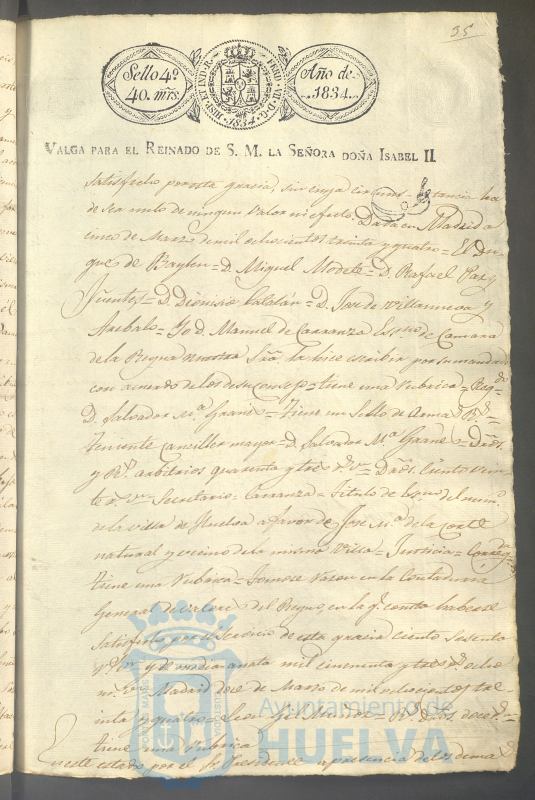 35
Sello 4º
40. mrs.
HISP. ET IND. R. FERD. VII. D. G. 1834
Año de
1834.
VALGA PARA EL REINADO DE S. M. LA SEÑORA DOÑA ISABEL II
satisfecho por esta gracia, sin cuya circunstancia ha
de ser nulo de ningun valor ni efecto. Dada en Madrid a
cinco de Marzo de mil ochocientos treinta y quatro = El Du
que de Baylen = D. Miguel Modet = D. Rafael Paz y
Fuentes = D. Dionisio Catalán = D. Jose de Villanueva y
Arebalo = Yo D. Manuel de Carranza Essno de Camara
de la Reyna nuestra Sra la hice escribir por su mandado
con acuerdo de los de su Consejo = tiene una rubrica = Regdo
D. Salvador Mª Granés = tiene un sello de Armas
Teniente Canciller mayor = D. Salvador Mª Granés = Dros
y Rs arbitrios quarenta y tres rs vn Dros Ciento vein
te rs vn Secretario Carranza = Titulo de Essno del num.
de la villa de Huelva a favor de Jose Mª de la Corte
natural y vecino de la misma Villa = Justicia = Corregdo
tiene una rubrica = Tomose razon en la Contaduria
General de valores del Reyno, en la q. consta haberse
satisfecho por el servicio de esta gracia ciento sesenta
y de media anata mil cincuenta y tres rs ocho
mrs vn Madrid doce de Marzo de mil ochocientos tre
inta y quatro =
tiene una rubrica
En este estado por el Sr Presidente a presencia de los demas
Ayuntamiento de
HUELVA